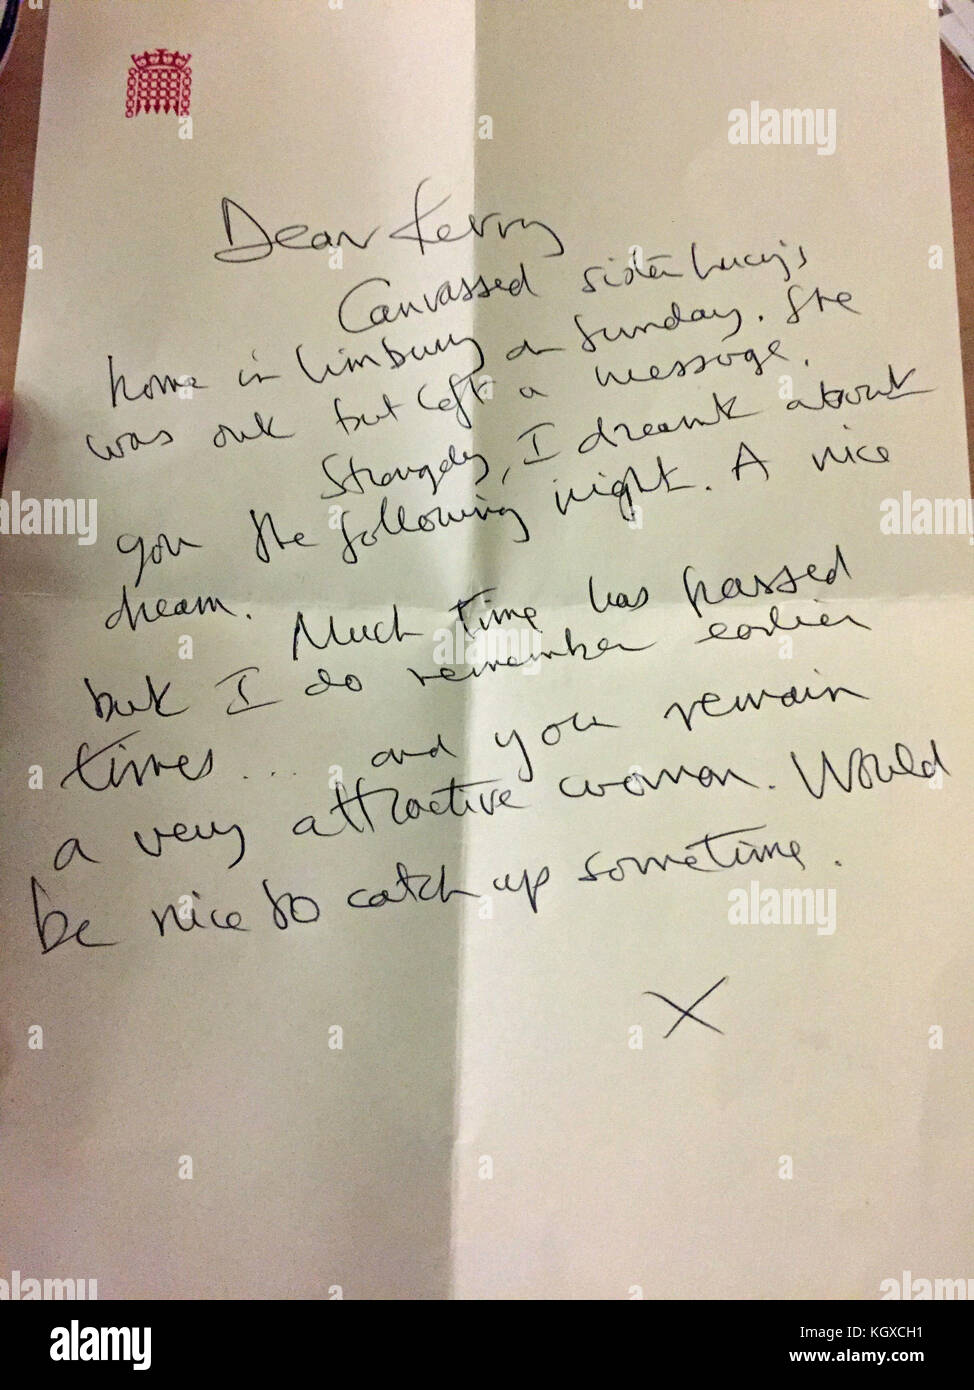 Dear Kerry
Canvassed sister Lucy's
home in Limbury on Sunday. She
was out but left a message.
Strangely, I dreamt about
you the following night. A nice
dream.
Much time has passed
but I do remember earlier
times.... and you remain
a very attractive woman. Would
be nice to catch up sometime.
X
alamy
alamy stock photo
KGXCH1
www.alamy.com